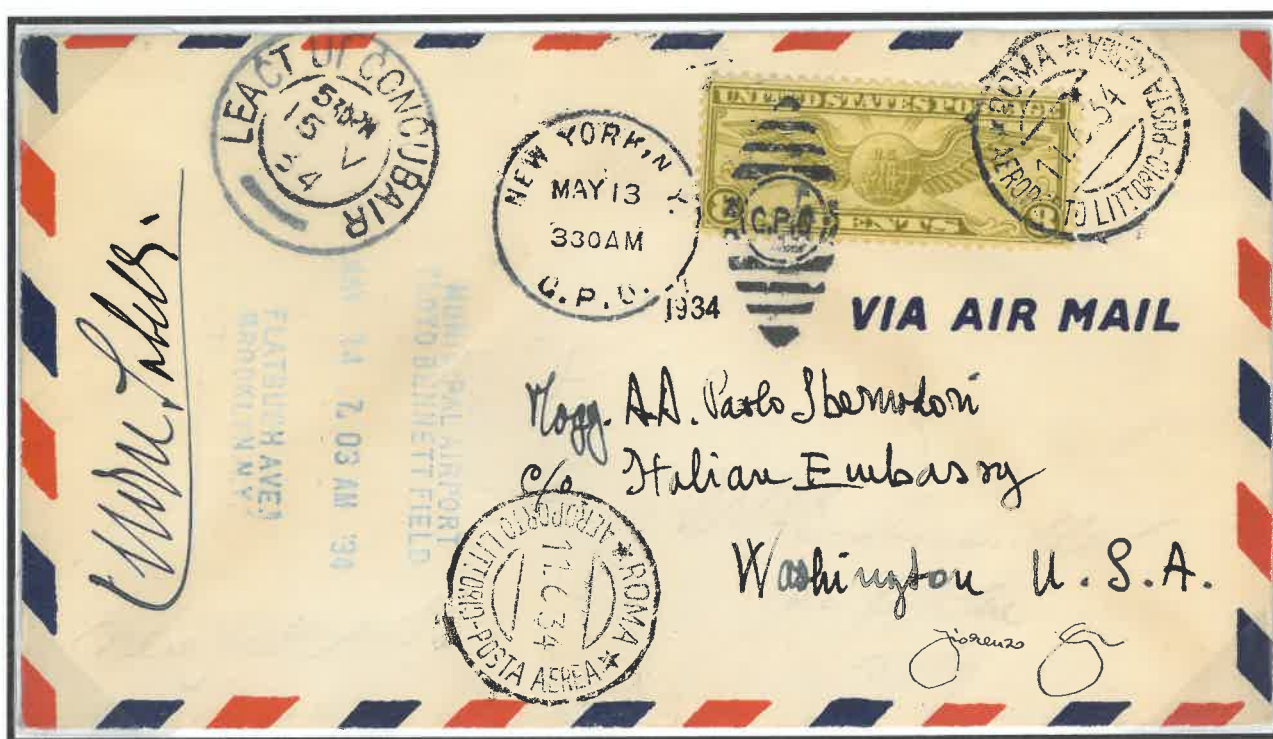 LEACT OF CONCUBAIR
530PM
15
V
34
NEW YORK, N.Y.
MAY 13
330AM
G.P.O.
1934
UNITED STATES POSTAGE
8 CENTS 8
G.P.O.
ROMA
AEROPORTO LITTORIO-POSTA AEREA
VIA AIR MAIL
MUNICIPAL AIRPORT
FLOYD BENNETT FIELD
MAY 14 7 03 AM '34
FLATBUSH AVE.
BROOKLYN N.Y.
Magg. A.A. Paolo Sbernadori
c/o Italian Embassy
Washington U.S.A.
ROMA
AEROPORTO LITTORIO-POSTA AEREA
11.6.34